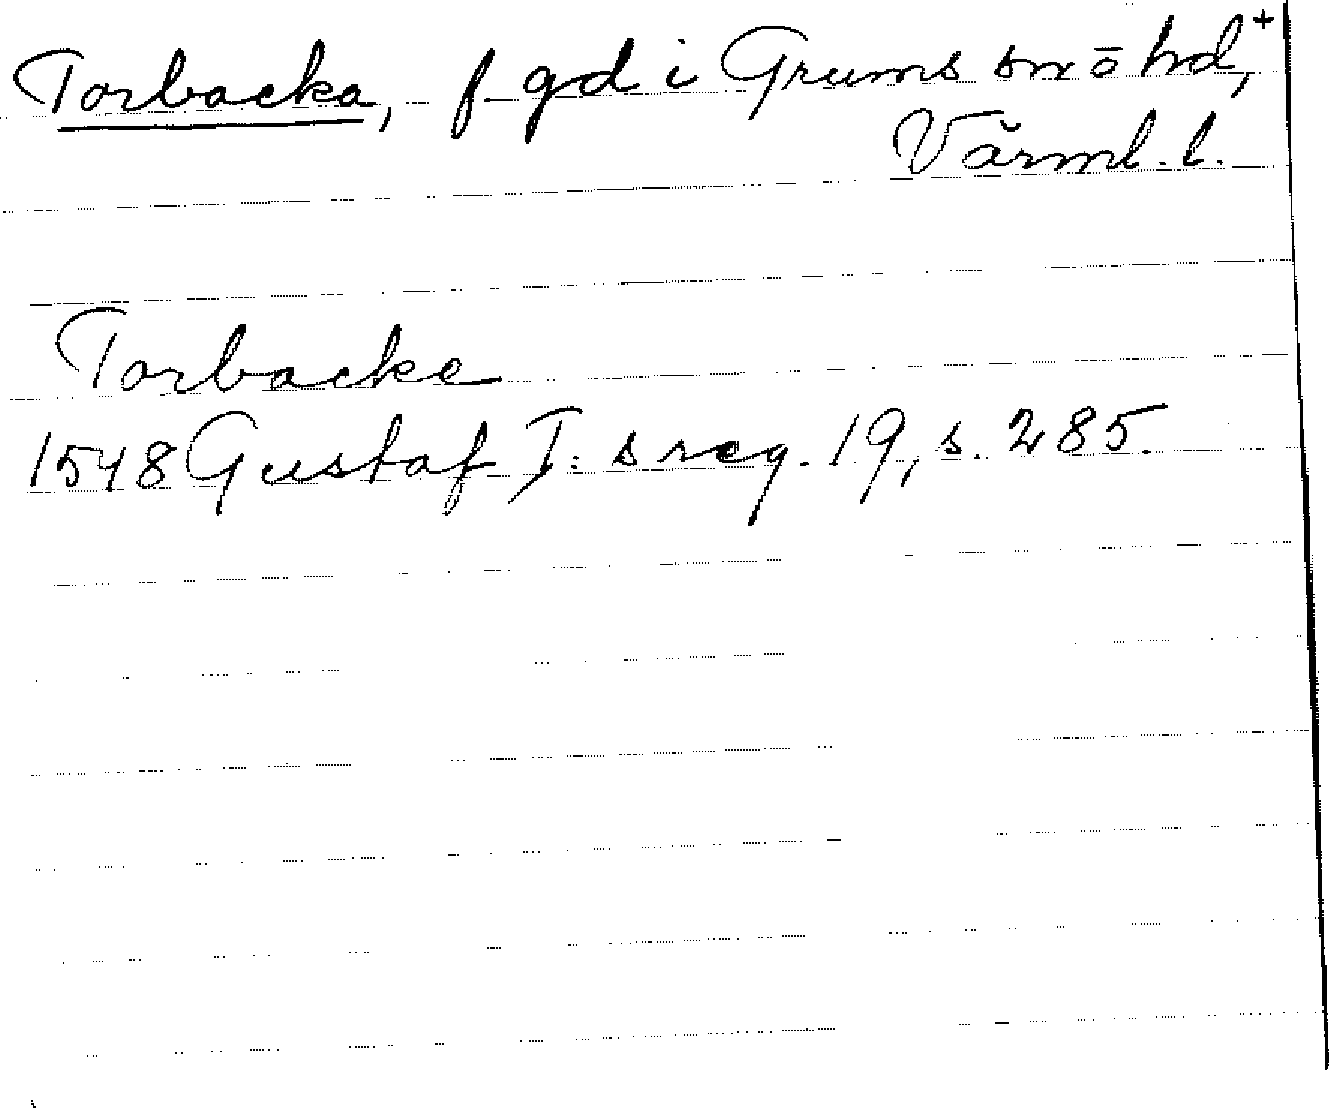 Torbacka, f gd i Grums sn o hd, +
Värml. l.
Torbacke
1548 Gustaf I:s reg. 19, s. 285.